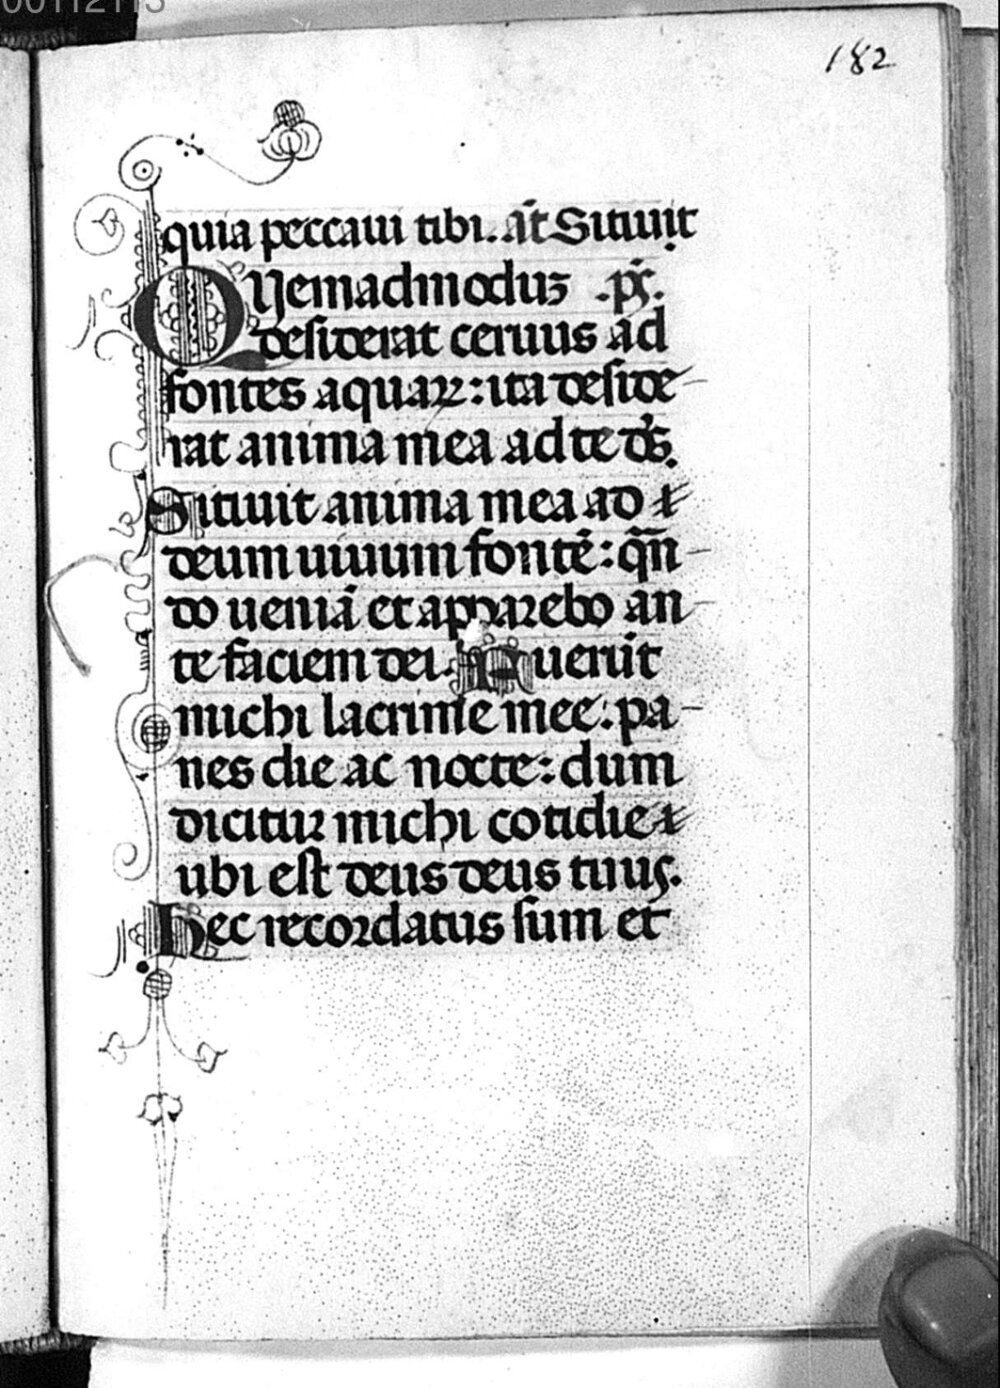 00112113
182
quia peccaui tibi. an̄t Sitiuit
QUemadmoduꝫ .pS̄.
desiderat ceruus ad
fontes aquaꝝ: ita deside-
rat anima mea ad te ds̄.
Sitiuit anima mea ad
deum uiuum fontē: qn̄-
do ueniā et apparebo an-
te faciem dei. Fuerūt
michi lacrime mee: pa-
nes die ac nocte: dum
dicitur michi cotidie
ubi est deus deus tuus.
Hec recordatus sum et